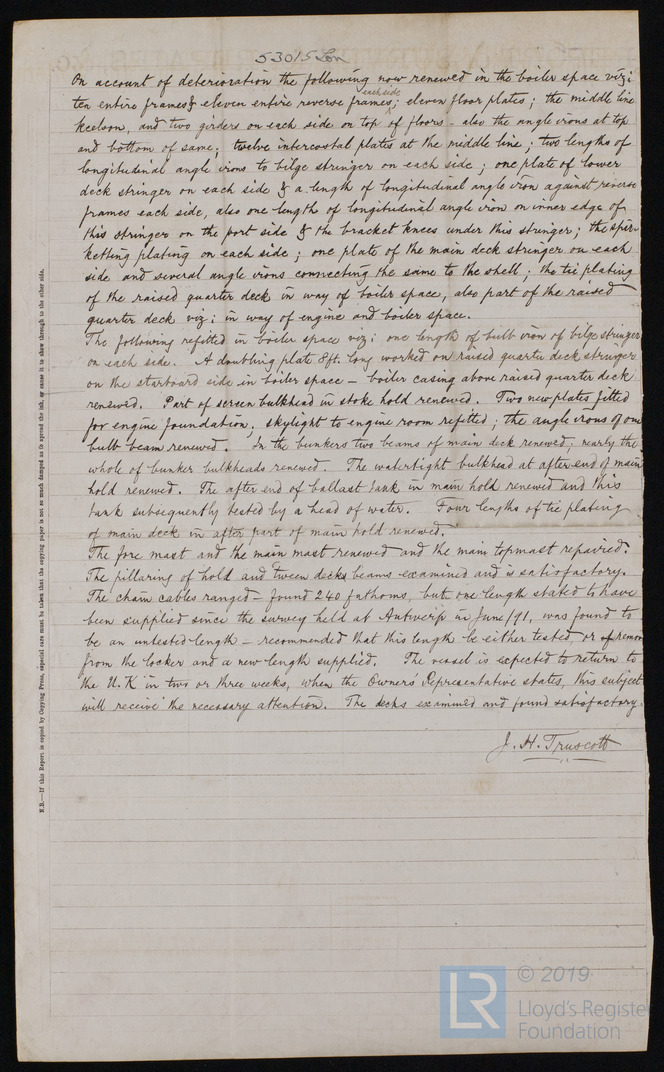 53015 Lon
On account of deterioration the following now renewed in the boiler space viz:
ten entire frames & eleven entire reverse frames each side; eleven floor plates; the middle line
keelson, and two girders on each side on top of floors - also the angle irons at top
and bottom of same; twelve intercostal plates at the middle line; two lengths of
longitudinal angle irons to bilge stringer on each side; one plate of lower
deck stringer on each side & a length of longitudinal angle iron against reverse
frames each side, also one length of longitudinal angle iron on inner edge of
this stringer on the port side & the bracket knees under this stringer; the spir-
ketting plating on each side; one plate of the main deck stringer on each
side and several angle irons connecting the same to the shell; the tie plating
of the raised quarter deck in way of boiler space, also part of the raised
quarter deck viz: in way of engine and boiler space.
The following refitted in boiler space viz: one length of bulb iron of bilge stringer
on each side. A doubling plate 8ft. long worked on raised quarter deck stringer
on the starboard side in boiler space - boiler casing above raised quarter deck
renewed. Part of screen bulkhead in stoke hold renewed. Two new plates fitted
for engine foundation, skylight to engine room refitted; the angle irons of one
bulb beam renewed. In the bunkers two beams of main deck renewed, nearly the
whole of bunker bulkheads renewed. The watertight bulkhead at after end of main
hold renewed. The after end of ballast tank in main hold renewed and this
tank subsequently tested by a head of water. Four lengths of tie plating
of main deck in after part of main hold renewed.
The fore mast and the main mast renewed and the main topmast repaired.
The pillaring of hold and tween decks beams examined and is satisfactory.
The chain cables ranged - found 240 fathoms, but one length stated to have
been supplied since the survey held at Antwerp in June /91, was found to
be an untested length - recommended that this length be either tested, or
from the locker and a new length supplied. The vessel is expected to return to
the U.K in two or three weeks, when the Owner's Representative states, this subject
will receive the necessary attention. The decks examined and found satisfactory.
J. H. Truscott
N.B.—If this Report is copied by Copying Press, especial care must be taken that the copying paper is not so much damped as to spread the ink, or cause it to show through to the other side.
LR © 2019
Lloyd's Register
Foundation